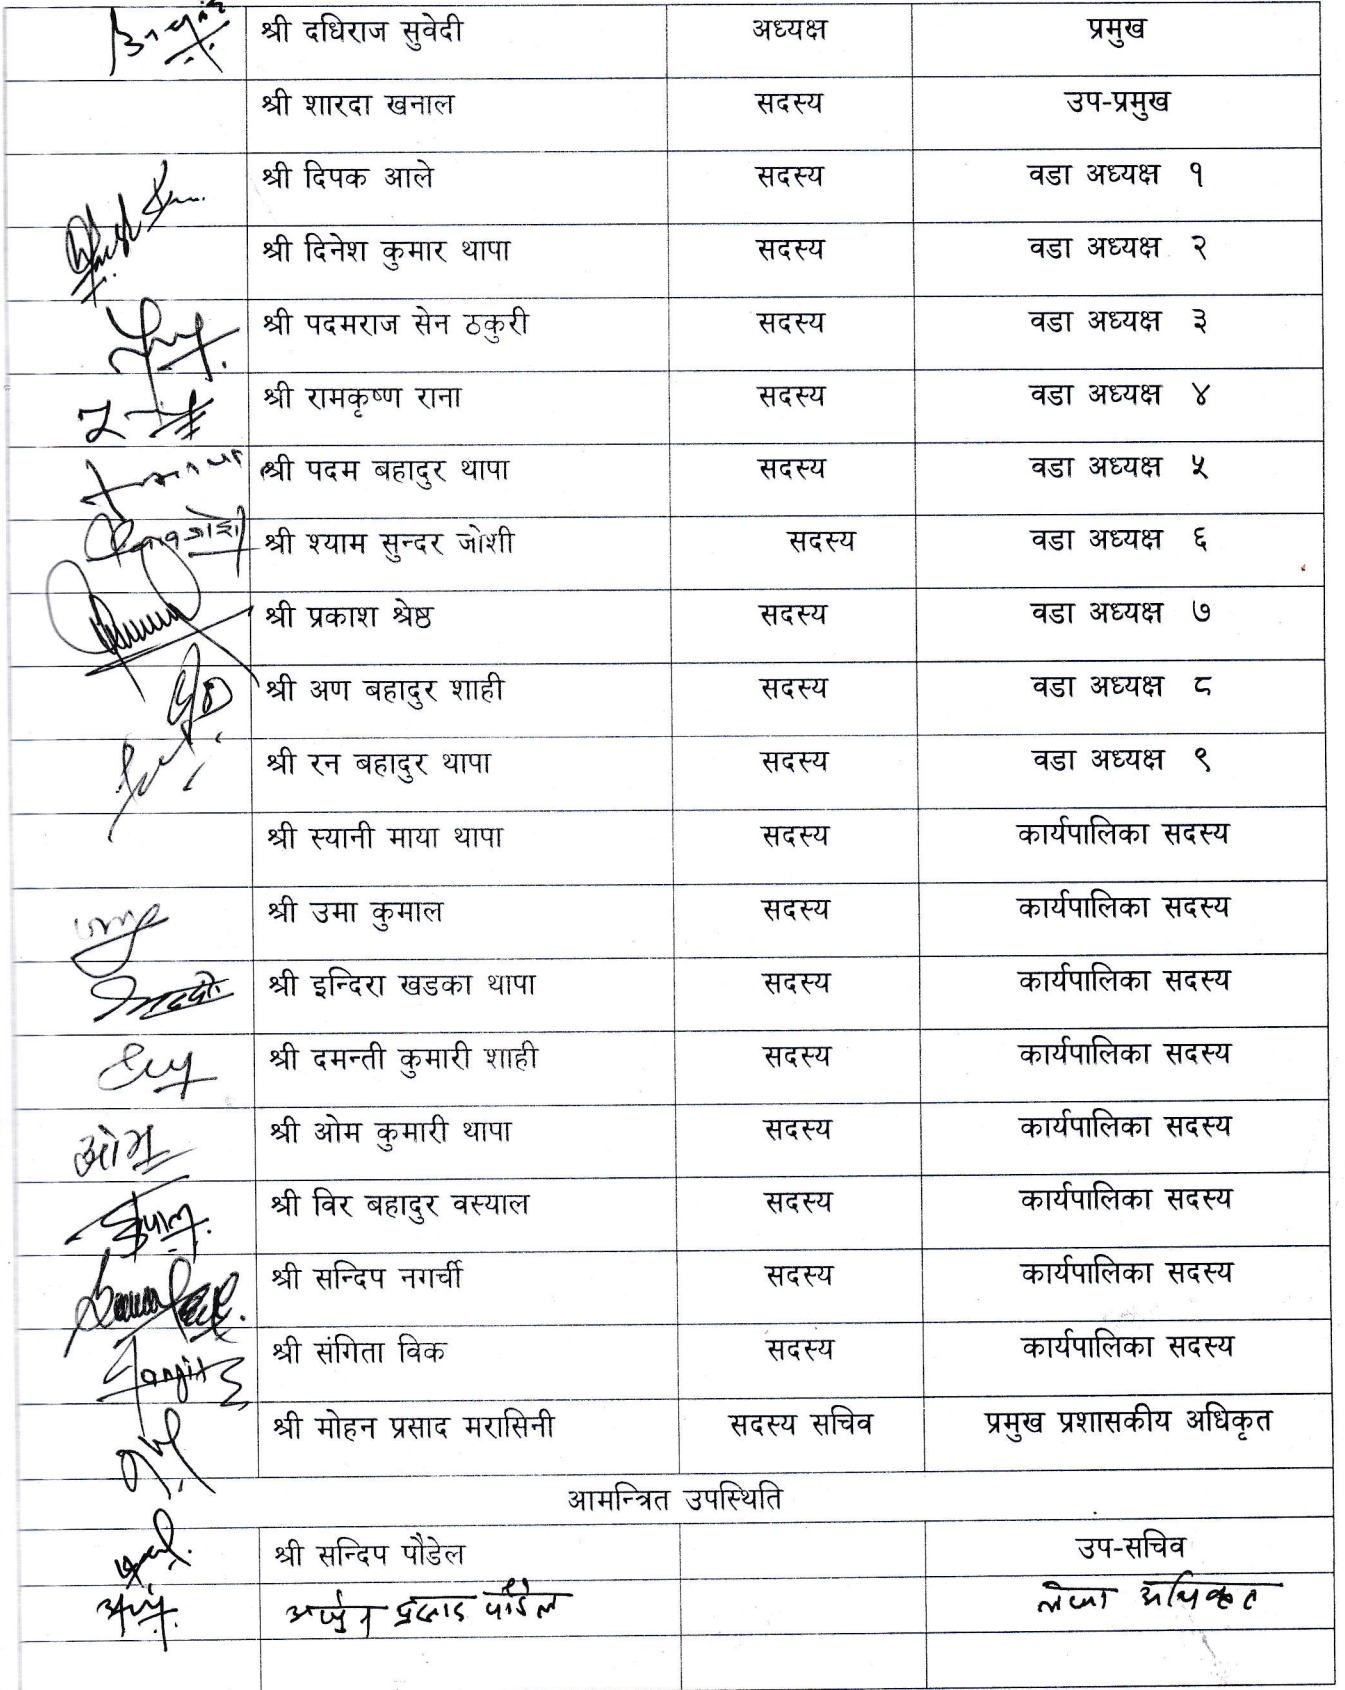 श्री दधिराज सुवेदी अध्यक्ष प्रमुख
श्री शारदा खनाल सदस्य उप-प्रमुख
श्री दिपक आले सदस्य वडा अध्यक्ष १
श्री दिनेश कुमार थापा सदस्य वडा अध्यक्ष २
श्री पदमराज सेन ठकुरी सदस्य वडा अध्यक्ष ३
श्री रामकृष्ण राना सदस्य वडा अध्यक्ष ४
श्री पदम बहादुर थापा सदस्य वडा अध्यक्ष ५
श्री श्याम सुन्दर जोशी सदस्य वडा अध्यक्ष ६
श्री प्रकाश श्रेष्ठ सदस्य वडा अध्यक्ष ७
श्री अण बहादुर शाही सदस्य वडा अध्यक्ष ८
श्री रन बहादुर थापा सदस्य वडा अध्यक्ष ९
श्री स्यानी माया थापा सदस्य कार्यपालिका सदस्य
श्री उमा कुमाल सदस्य कार्यपालिका सदस्य
श्री इन्दिरा खडका थापा सदस्य कार्यपालिका सदस्य
श्री दमन्ती कुमारी शाही सदस्य कार्यपालिका सदस्य
ओम श्री ओम कुमारी थापा सदस्य कार्यपालिका सदस्य
श्री विर बहादुर वस्याल सदस्य कार्यपालिका सदस्य
श्री सन्दिप नगर्ची सदस्य कार्यपालिका सदस्य
श्री संगिता विक सदस्य कार्यपालिका सदस्य
श्री मोहन प्रसाद मरासिनी सदस्य सचिव प्रमुख प्रशासकीय अधिकृत
आमन्त्रित उपस्थिति
श्री सन्दिप पौडेल उप-सचिव
अर्जुन प्रसाद पौडेल लेखा अधिकृत